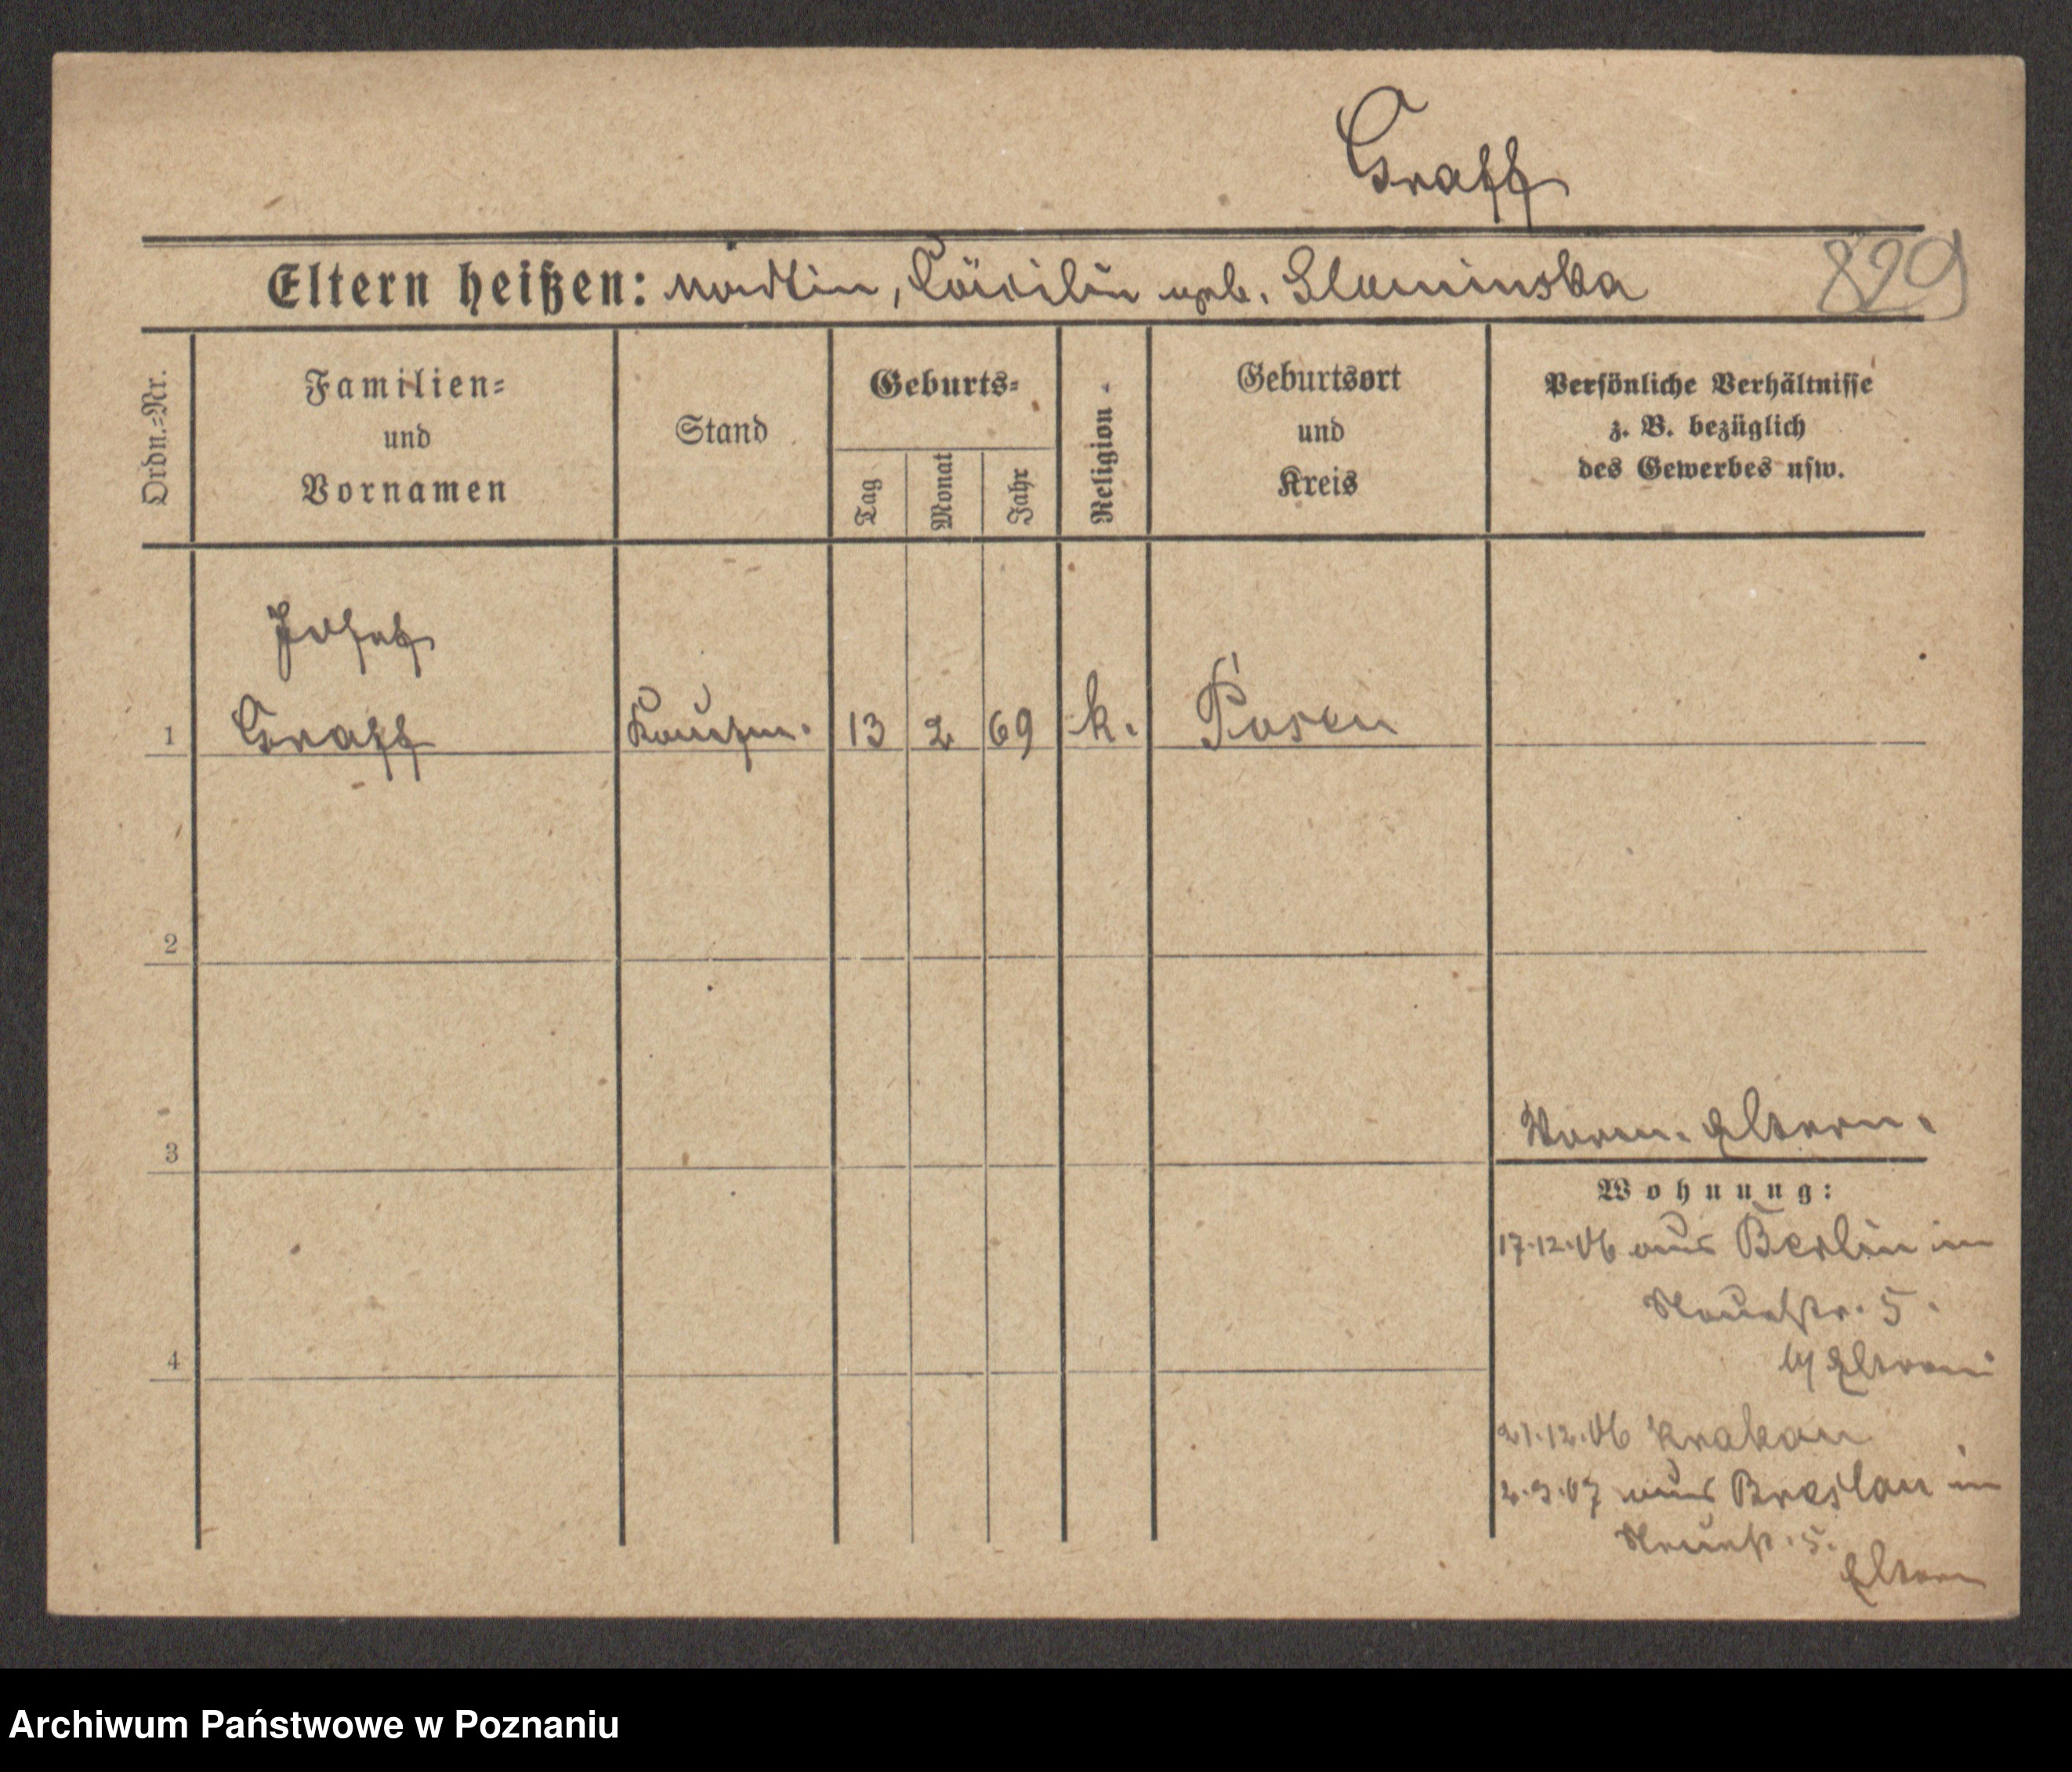 Graff
Eltern heißen: Martin, Cäcilie geb. Slominska
829
Ordn.=Nr.
Familien=
und
Vornamen
Stand
Geburts=
Tag
Monat
Jahr
Religion
Geburtsort
und
Kreis
Persönliche Verhältnisse
z. B. bezüglich
des Gewerbes usw.
Josef
1 Graff Kaufm. 13 2 69 k. Posen
2
3
Eltern.
Wohnung:
17.12.06 aus Berlin in
Neuestr. 5.
b/ Eltern
21.12.06 Krakau
2.9.07 aus Breslau in
Neuestr. 5.
Eltern
4
Archiwum Państwowe w Poznaniu